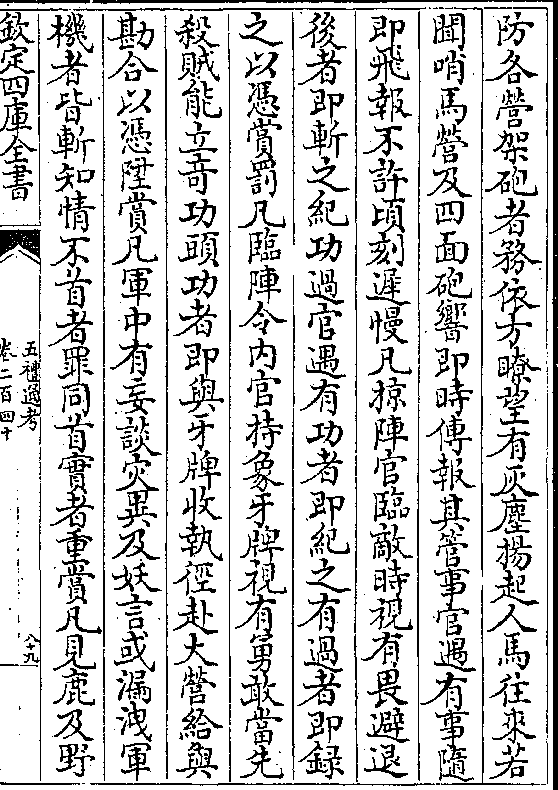 防各營架砲者務依方瞭望有灰塵揚起人馬往來若
聞哨馬營及四面砲響即時傳報其管事官遇有事隨
即飛報不許頃刻遲慢凡掠陣官臨敵時視有畏避退
後者即斬之紀功過官遇有功者即紀之有過者即録
之以憑賞罰凡臨陣令内官持象牙牌視有勇敢當先
殺賊能立竒功頭功者即與牙牌收執徑赴大營給與
勘合以憑陞賞凡軍中有妄談灾異及妖言或漏洩軍
機者皆斬知情不首者罪同首實者重賞凡見鹿及野
欽定四庫全書
五禮通考
卷二百四十
八十九